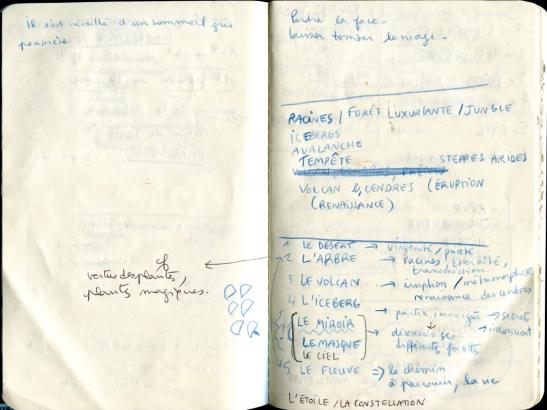 il s'est réveillé d'un sommeil gris
poussière
cf
vertus des plantes,
plantes magiques.
Perdre la face.
laisser tomber le visage.
RACINES / FORÊT LUXURIANTE / JUNGLE
ICEBERGS
AVALANCHE
TEMPÊTE
STEPPES ARIDES
VOLCAN & CENDRES (ÉRUPTION
(RENAISSANCE)
1 LE DÉSERT → virginité / pureté
2 L'ARBRE → racines, éternité,
transmission
3 LE VOLCAN → / métamorphose
renaissance des cendres
4 L'ICEBERG → partie immergée → secrets
→ inconscient
LE MIROIR → ses
différents
LE MASQUE
LE CIEL
5 LE FLEUVE => le chemin
à parcourir, la vie
L'ÉTOILE / LA CONSTELLATION